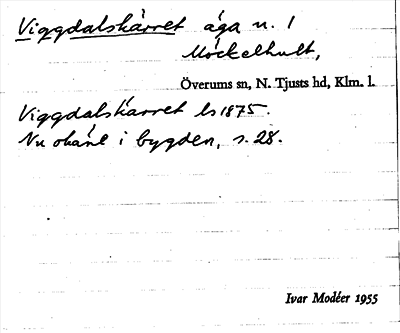 Viggdalskärret äga n. 1
Möckelhult,
Överums sn, N. Tjusts hd, Klm. l.
Viggdalskärret ls 1875.
Nu okänt i bygden, s. 28.
Ivar Modéer 1955